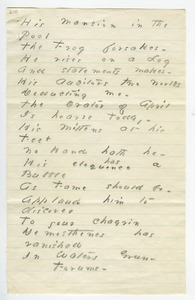 His Mansion in the
Pool
The Frog forsakes -
He rises on a Log
And statements makes -
His Auditors two Worlds
Deducting me -
The Orator of April
Is hoarse Today -
His Mittens at his
Feet
No Hand hath he -
His eloquence a
has
Bubble
As Fame should be -
Applaud him to
discover
To your chagrin
Demosthenes has
vanished
In Waters Green -
Forums -